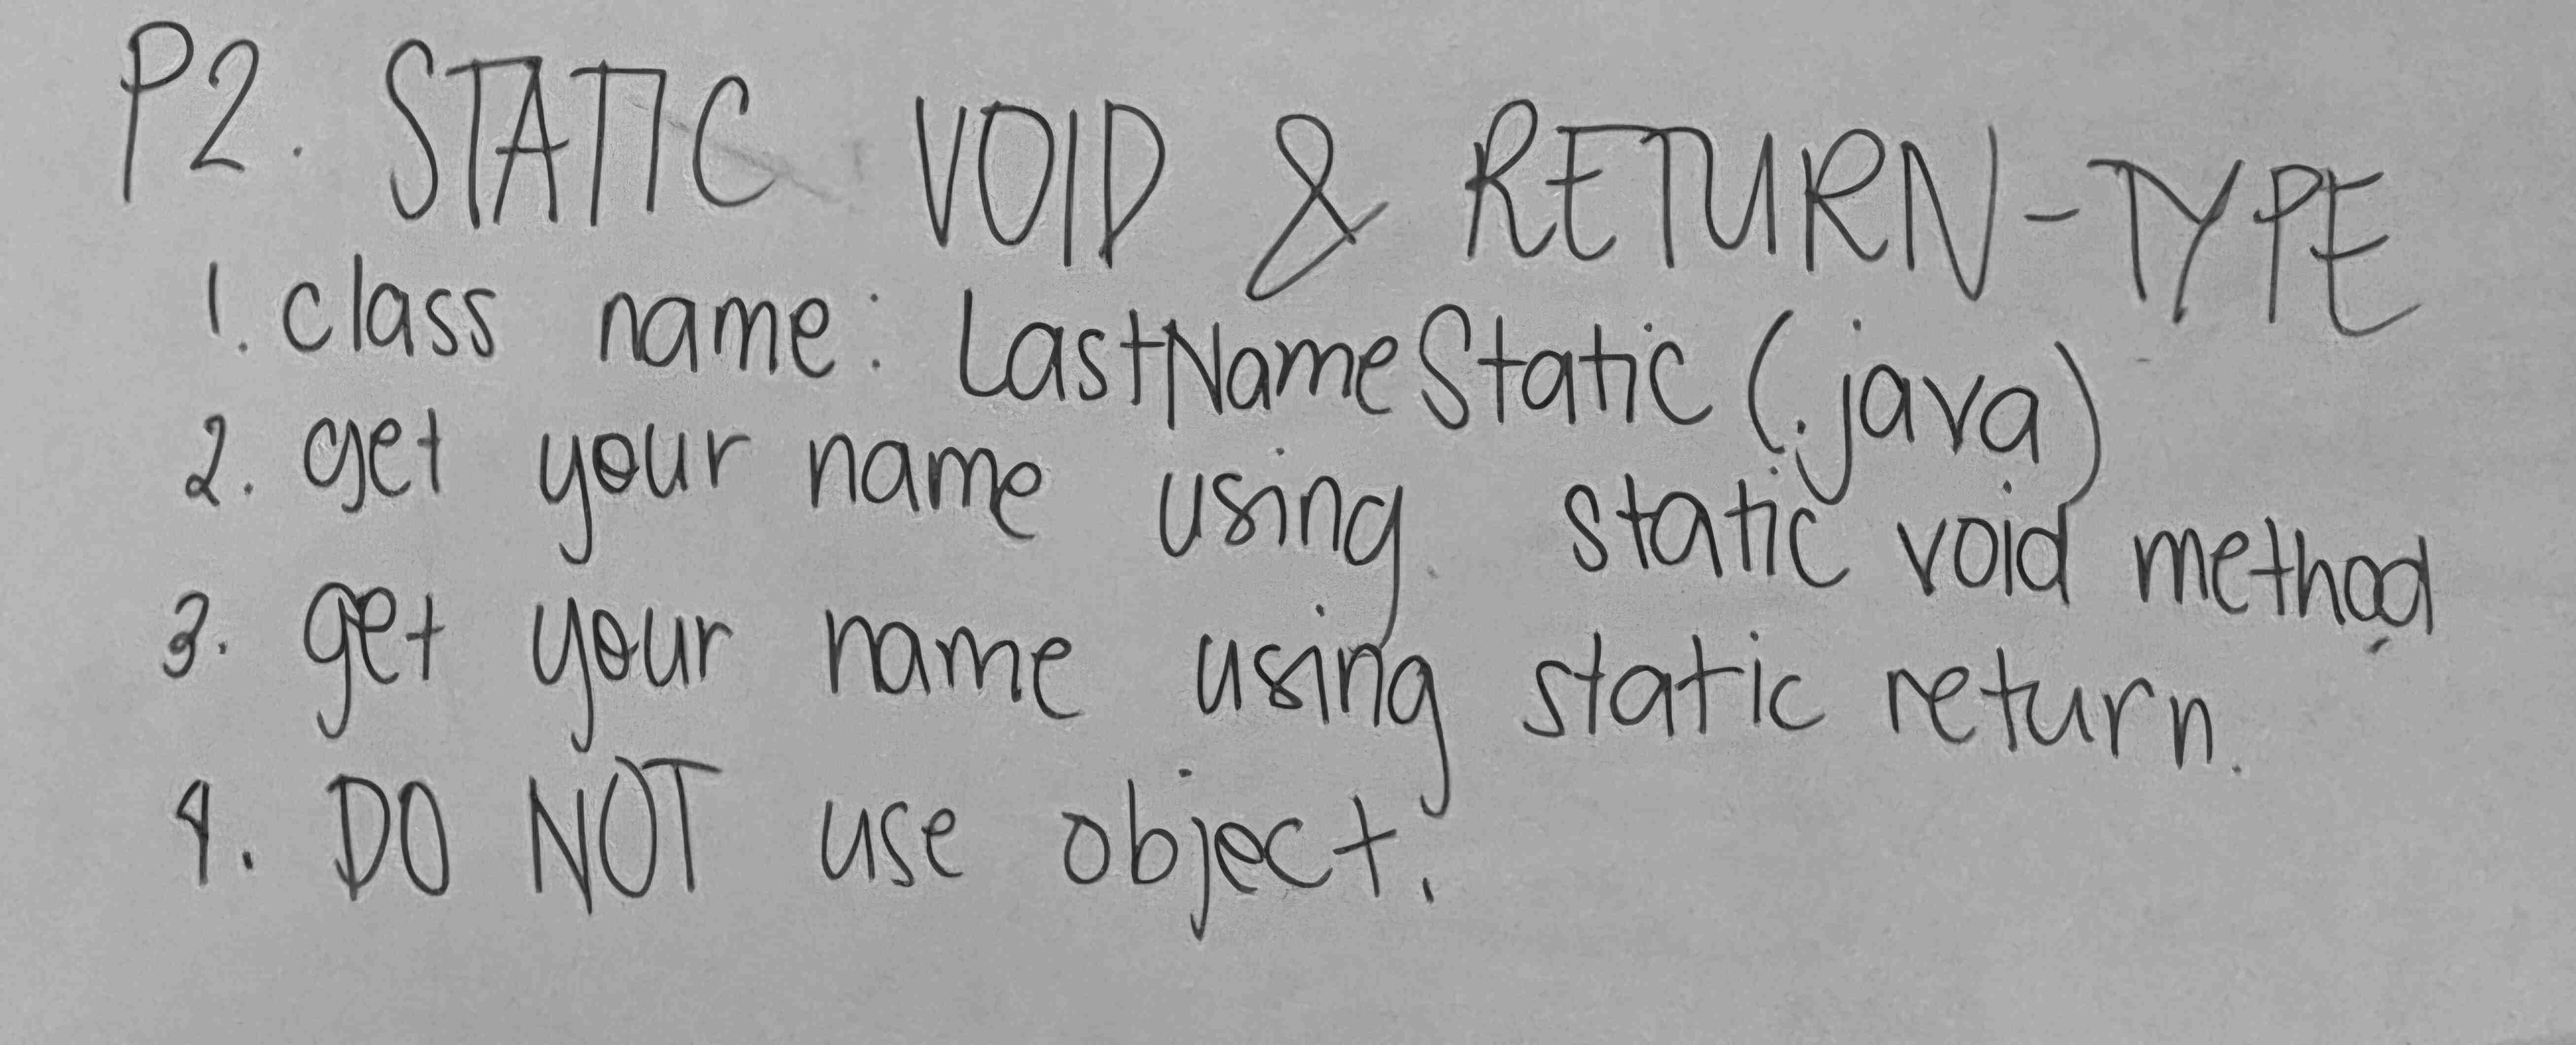 P2. STATIC VOID & RETURN-TYPE
1. class name: LastNameStatic (.java)
2. get your name using static void method
3. get your name using static return.
4. DO NOT use object.